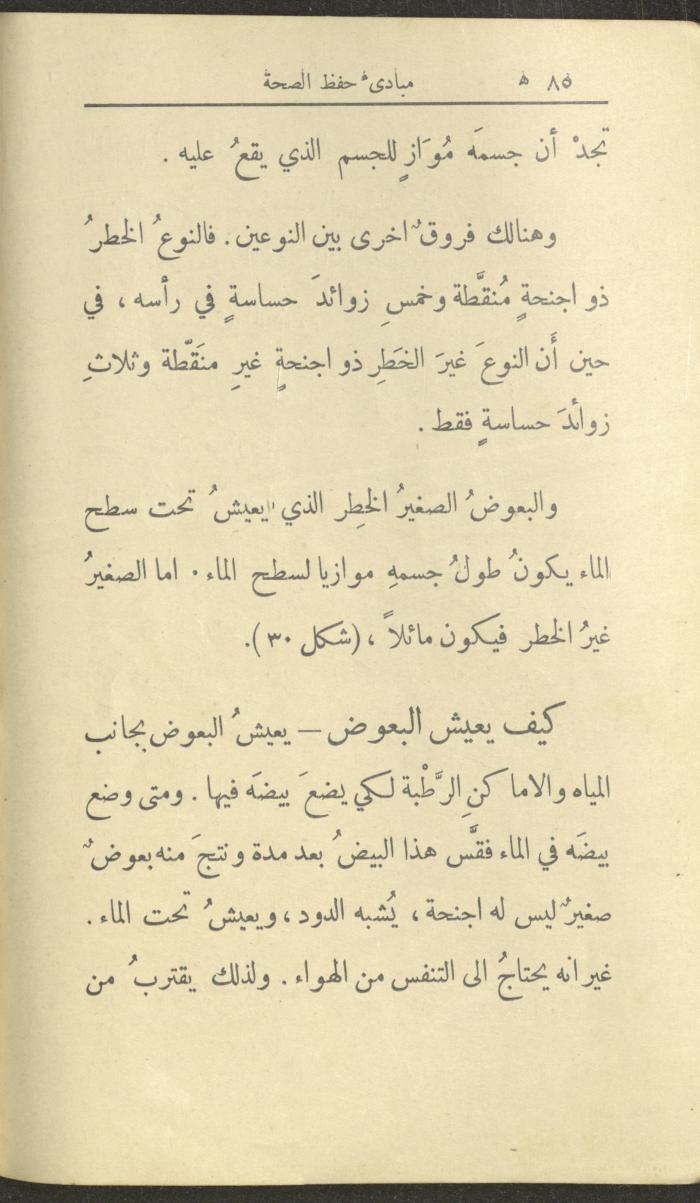 مبادىء حفظ الصحة ٨٥
تجدْ أن جسمَه مُوَازٍ للجسم الذي يقعُ عليه .
وهنالك فروقٌ اخرى بين النوعين . فالنوعُ الخطرُ
ذو اجنحةٍ مُنقَّطة وخمسِ زوائدَ حساسةٍ في رأسه ، في
حين أَن النوعَ غيرَ الخَطِرِ ذو اجنحةٍ غيرِ منَقّطة وثلاثِ
زوائدَ حساسةٍ فقط .
والبعوضُ الصغيرُ الخطِر الذي يعيشُ تحت سطح
الماء يكونُ طولُ جسمهِ موازيا لسطح الماء . اما الصغيرُ
غيرُ الخطر فيكون مائلاً ، (شكل ٣٠).
كيف يعيش البعوض — يعيشُ البعوض بجانب
المياه والاماكنِ الرَّطْبة لكي يضعَ بيضَه فيها . ومتى وضع
بيضَه في الماء فقَّس هذا البيضُ بعد مدة ونتجَ منه بعوضٌ
صغيرٌ ليس له اجنحة ، يُشبه الدود ، ويعيشُ تحت الماء .
غير انه يحتاجُ الى التنفس من الهواء . ولذلك يقتربُ من